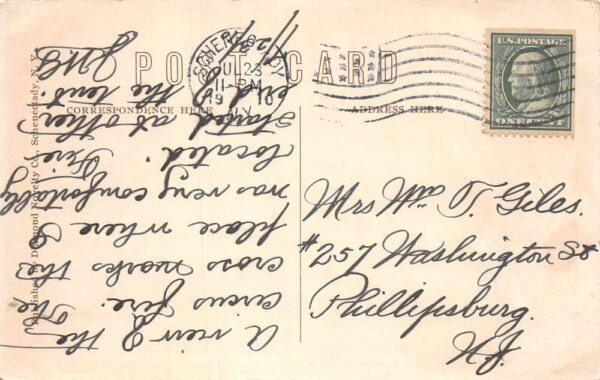 POST CARD
CORRESPONDENCE HERE
ADDRESS HERE
SCHENECTADY
JUL 23
11-PM
1910
N.Y.
U.S. POSTAGE
ONE CENT
Mrs Wm T. Giles.
#257 Washington St
Phillipsburg.
N.J.
A view of the
circus fire. The
cross marks the
place where I
was very comfortably
located. Fire
started at other
end of the tent.
Published by Novelty Co., Schenectady, N. Y.